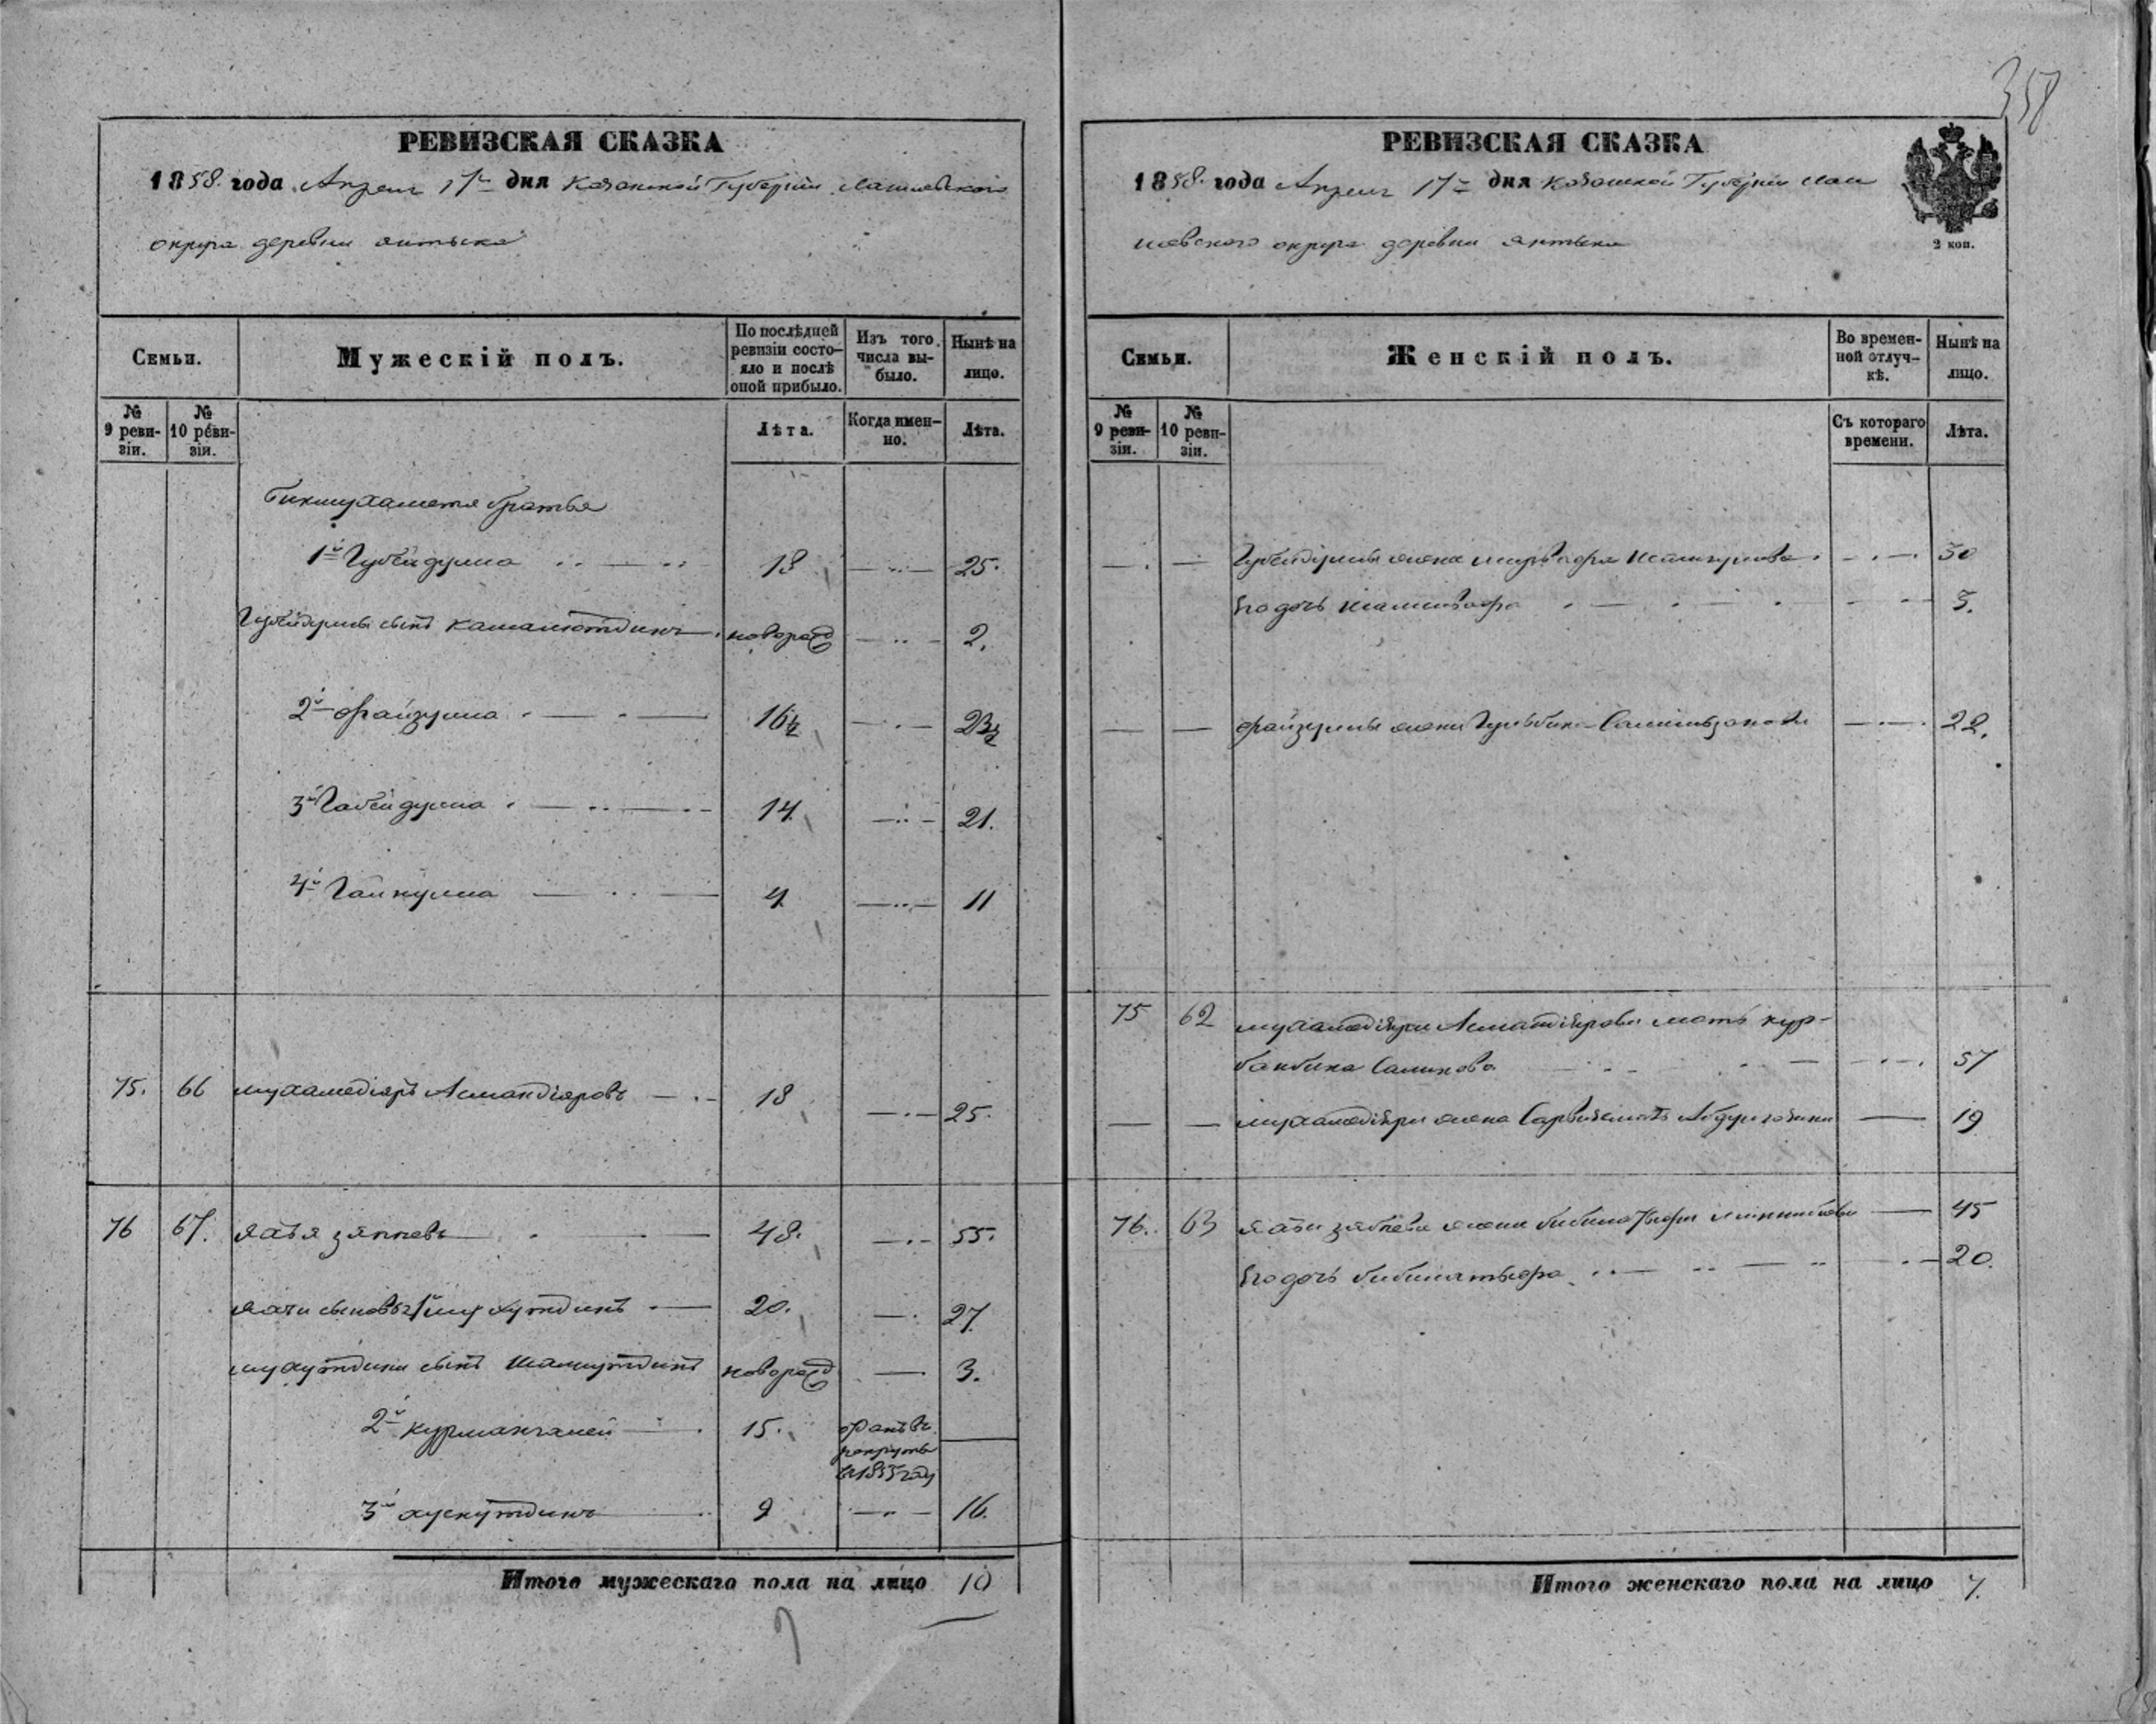 358
РЕВИЗСКАЯ СКАЗКА
1858. года Апреля 17го дня Казанской Губернии Лаишевского
округа деревни Янтыка
Семьи.
Мужескій полъ.
По послѣдней ревизіи состояло и послѣ оной прибыло.
Изъ того числа выбыло.
Нынѣ на лицо.
№ 9 ревизіи.
№ 10 ревизіи.
Лѣта.
Когда именно.
Лѣта.
Бикмухаметя братья
1й Губейдулла 18 25.
Губейдуллы сынъ Камалютдинъ новорожд 2.
2й Файзулла 16½ 23½
3й Габейдулла 14. 21.
4й Гайнулла 4 11
75. 66 Мухамедіяръ Асмандіяровъ 18 25.
76 67. Яхъя Зяппевъ 48. 55.
Яхъи сыновья 1й Мухутдинъ 20. 27.
Мухутдина сынъ Шамсутдинъ новорожд 3.
2й Курмангалей 15. въ рекруты въ 1855 году
3й Хуснутдинъ 9 16.
Итого мужескаго пола на лицо 10
РЕВИЗСКАЯ СКАЗКА
1858. года Апреля 17го дня Казанской Губернии Лаи
шевского округа деревни Янтыка
2 коп.
Семьи.
Женскій полъ.
Во временной отлучкѣ.
Нынѣ на лицо.
№ 9 ревизіи.
№ 10 ревизіи.
Съ котораго времени.
Лѣта.
Губейдуллы жена 30
Его дочь 5.
Файзуллы жена Гульбика 22.
75 62 Мухамедіяра Асмандіярова мать Кур-
банбика Салихова 57
Мухамедіяра жена 19
76. 63 Яхъи Зяббева жена 45
Его дочь 20.
Итого женскаго пола на лицо 7.